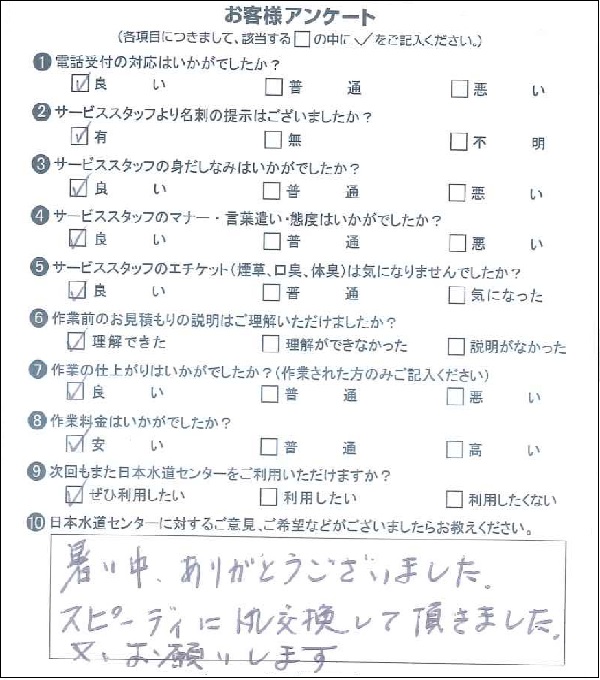 お客様アンケート
(各項目につきまして、該当する□の中に✓をご記入ください。)
❶電話受付の対応はいかがでしたか?
☑良い □普通 □悪い
❷サービススタッフより名刺の提示はございましたか?
☑有 □無 □不明
❸サービススタッフの身だしなみはいかがでしたか?
☑良い □普通 □悪い
❹サービススタッフのマナー・言葉遣い・態度はいかがでしたか?
☑良い □普通 □悪い
❺サービススタッフのエチケット(煙草、口臭、体臭)は気になりませんでしたか?
☑良い □普通 □気になった
❻作業前のお見積もりの説明はご理解いただけましたか?
☑理解できた □理解ができなかった □説明がなかった
❼作業の仕上がりはいかがでしたか?(作業された方のみご記入ください)
☑良い □普通 □悪い
❽作業料金はいかがでしたか?
☑安い □普通 □高い
❾次回もまた日本水道センターをご利用いただけますか?
☑ぜひ利用したい □利用したい □利用したくない
❿日本水道センターに対するご意見、ご希望などがございましたらお教えください。
暑い中、ありがとうございました。
スピーディに 交換して頂きました。
又、お願いします